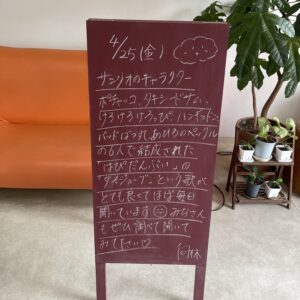 4/25(金)
サンリオのキャラクター
ポチャッコ、タキシードサム、
けろけろけろっぴ、ハンギョドン
バッドばつ丸、あひるのペックル
の6人で結成された
「はぴだんぶい」の
「ダイジョーブ」という歌が
とても良くてほぼ毎日
聞いています みなさん
もぜひ調べて聞いて
みて下さい♡